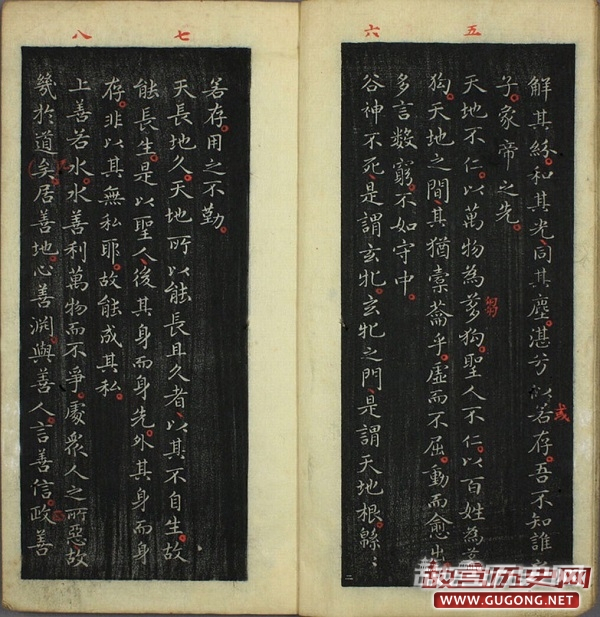 五
六
解其紛。和其光、同其塵。湛兮以若存。吾不知誰
子。象帝之先。
天地不仁。以萬物為芻狗。聖人不仁。以百姓為芻
狗。天地之間、其猶橐籥乎。虛而不屈。動而愈出
多言數窮。不如守中。
谷神不死。是謂玄牝。玄牝之門、是謂天地根。緜〻
七
八
若存。用之不勤。
天長地久。天地所以能長且久者、以其不自生。故
能長生。是以聖人、後其身而身先。外其身而身
存。非以其無私耶。故能成其私。
上善若水。水善利萬物而不爭。處衆人之所惡。故
幾於道矣。居善地。心善淵。與善人。言善信。政善
故宫历史网
WWW.GUGONG.NET